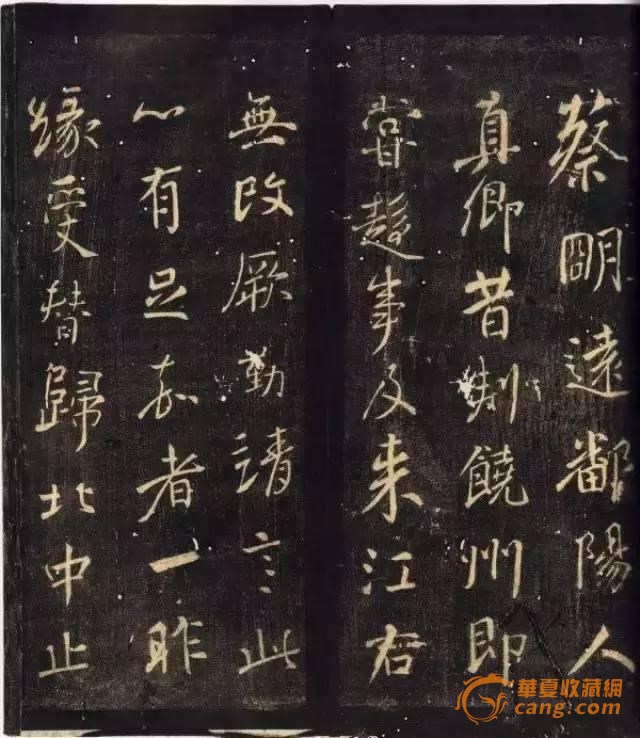 蔡明遠鄱陽人
真卿昔刺饒州即
嘗趨事及来江右
無改厥勤靖言此
心有足嘉者一昨
緣受替歸北中止
華夏收藏網
cang.com